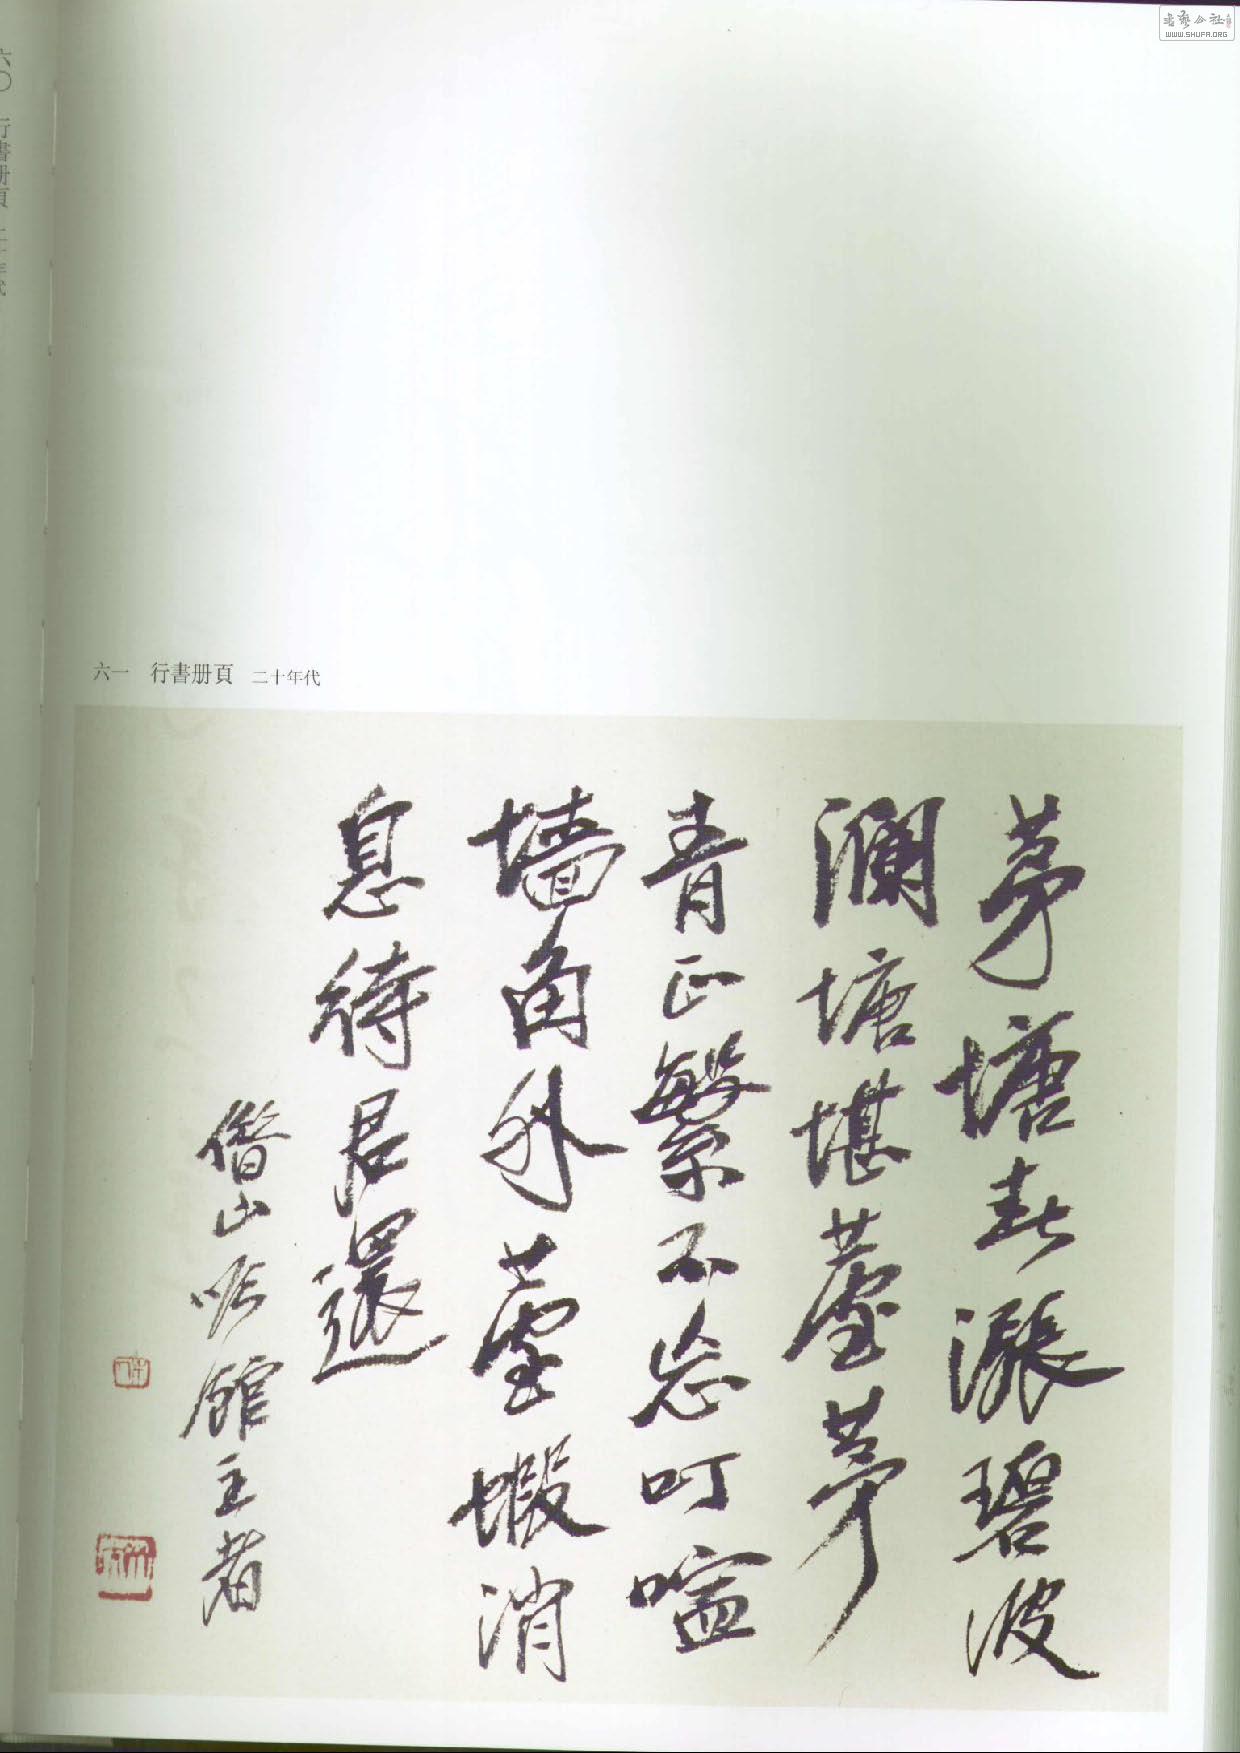 书艺公社
WWW.SHUFA.ORG
六〇 行書册頁 二十年代
六一 行書册頁 二十年代
茅塘春漲碧波
瀾塘堪蘆茅
青正繁不忘叮嚀
墻角外蘆蝦消
息待君還
借山吟館主者